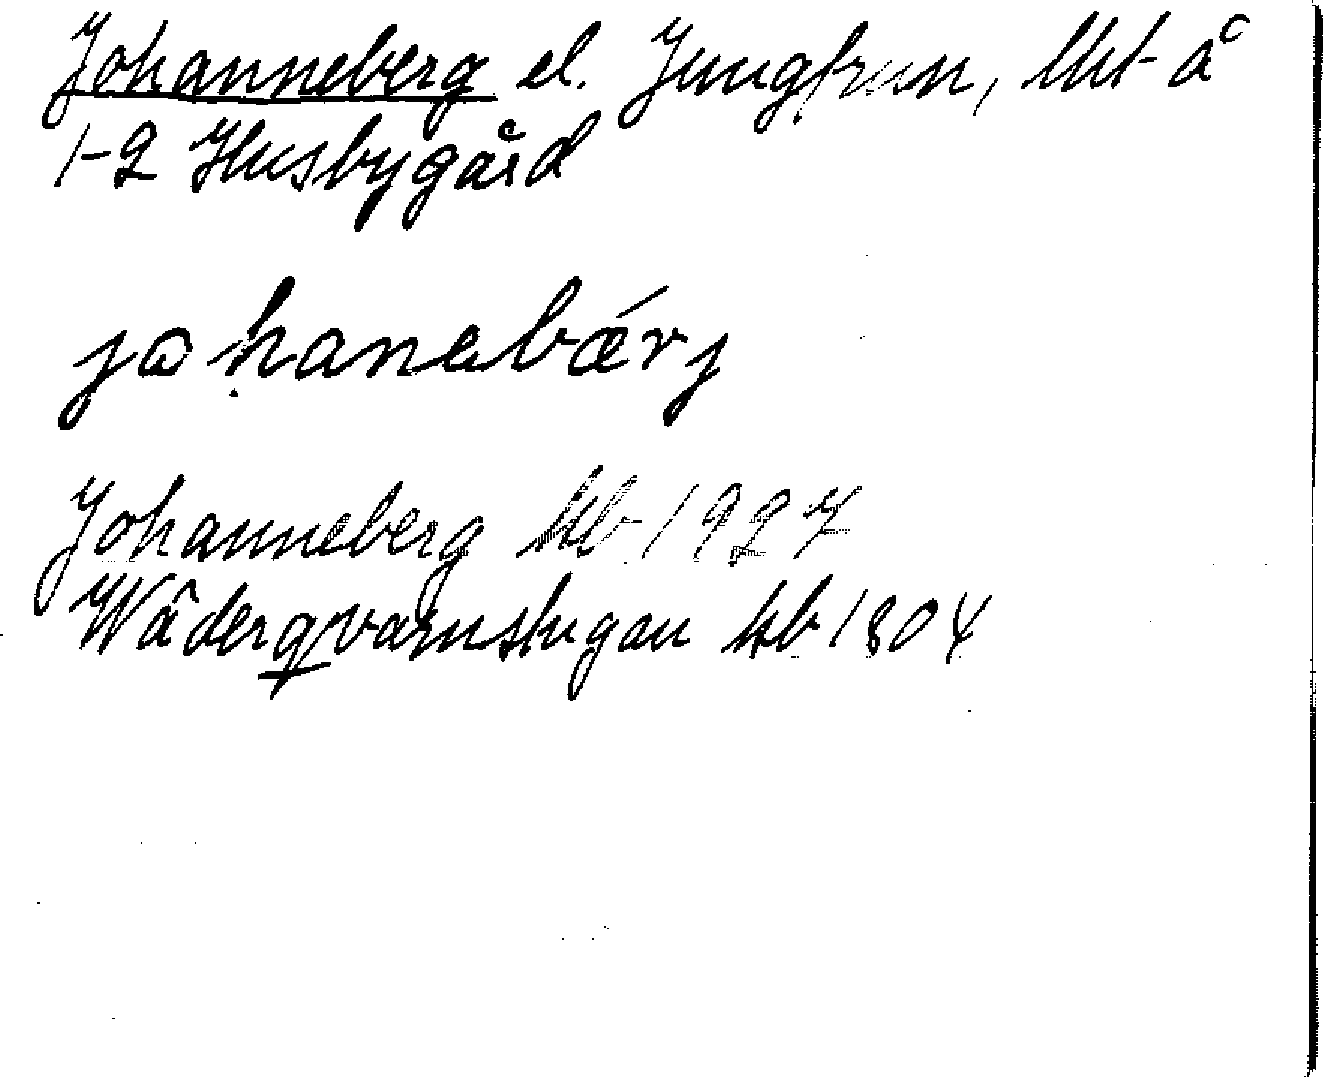 Johanneberg el. Jungfrun, lht å
1-2 Husbygård
johanebǽrj
Johanneberg kb 1927
Wäderqvarnstugan kb 1804